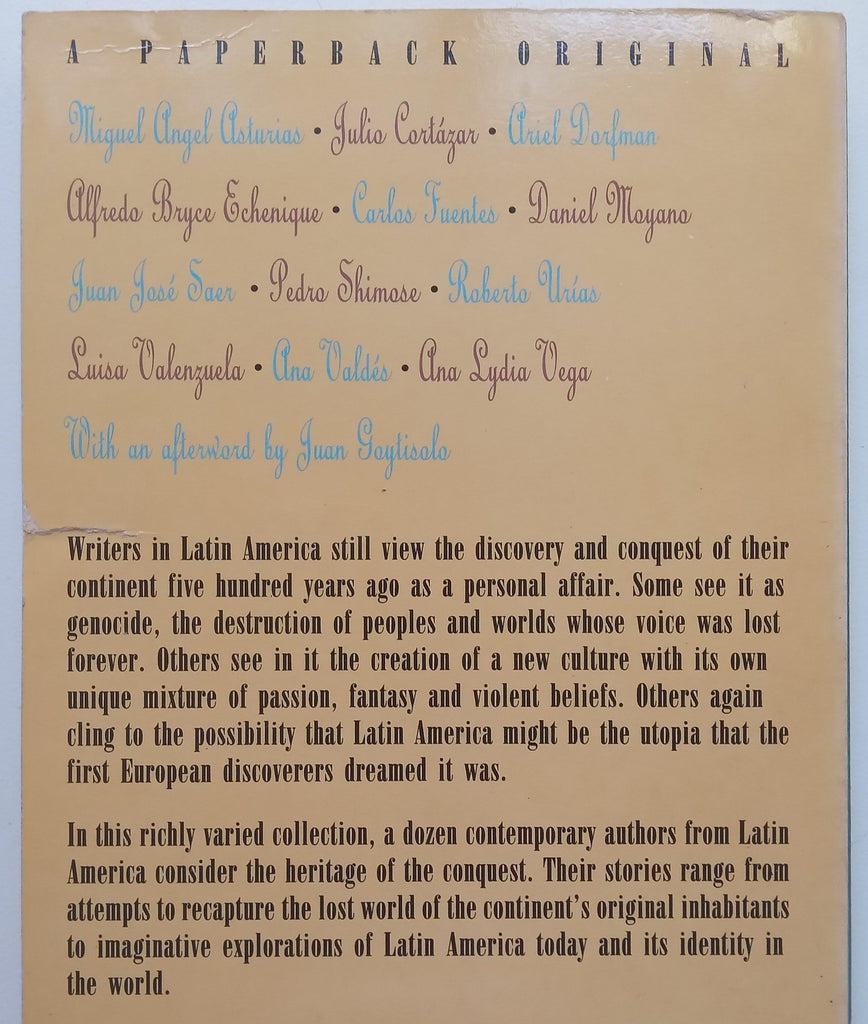 A PAPERBACK ORIGINAL
Miguel Angel Asturias • Julio Cortázar • Ariel Dorfman
Alfredo Bryce Echenique • Carlos Fuentes • Daniel Moyano
Juan José Saer • Pedro Shimose • Roberto Urías
Luisa Valenzuela • Ana Valdés • Ana Lydia Vega
With an afterword by Juan Goytisolo
Writers in Latin America still view the discovery and conquest of their
continent five hundred years ago as a personal affair. Some see it as
genocide, the destruction of peoples and worlds whose voice was lost
forever. Others see in it the creation of a new culture with its own
unique mixture of passion, fantasy and violent beliefs. Others again
cling to the possibility that Latin America might be the utopia that the
first European discoverers dreamed it was.
In this richly varied collection, a dozen contemporary authors from Latin
America consider the heritage of the conquest. Their stories range from
attempts to recapture the lost world of the continent's original inhabitants
to imaginative explorations of Latin America today and its identity in
the world.